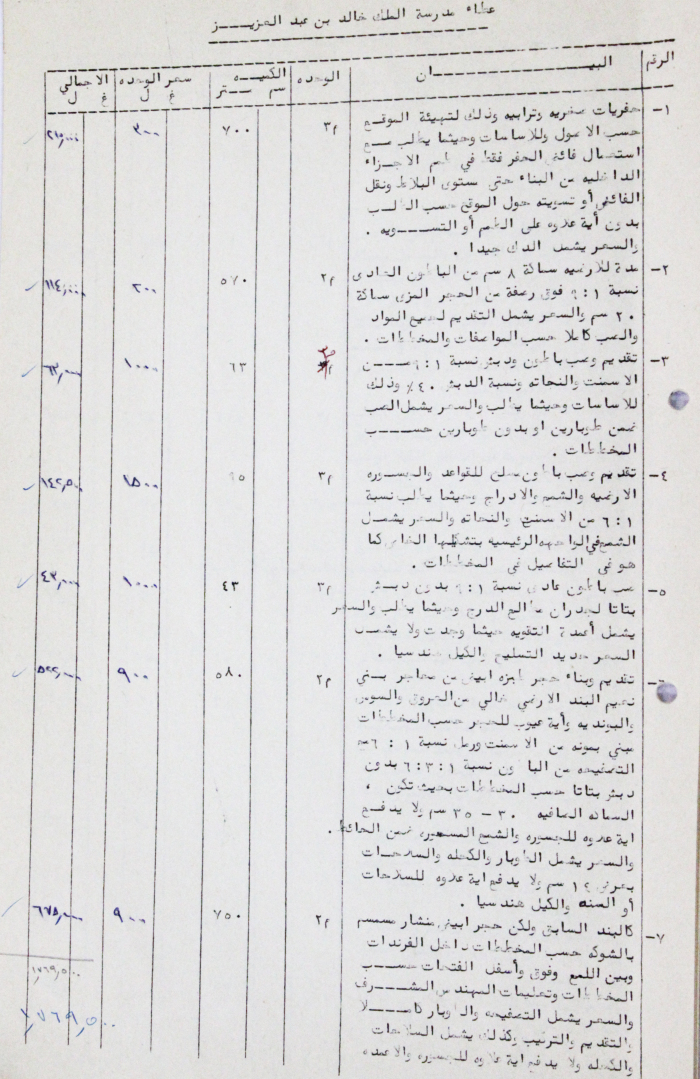 عطاء مدرسة الملك خالد بن عبد العزيـــز
الرقم البيـــــــــان الوحده الكميـــه سعر الوحده الاجمالي
سم ـــ تر غ ل غ ل
١- حفريات صخريه وترابيه وذلك لتهيئة الموقـع م٣ ٧٠٠ ٣٠٠ ٢١٠,٠٠٠
حسب الاصول وللاساسات وحيثما يطلب مــع
استعمال فائض الحفر فقط في طمم الاجـزاء
الداخليه من البناء حتى مستوى البلاط ونقل
الفائض أو تسويته حول الموقع حسب الطلـب
بدون أية علاوه على الطمم أو التســـويه .
والسعر يشمل الدك جيدا .
٢- مدة للارضيه سماكة ٨ سم من الباطون العادى م٢ ٥٧٠ ٢٠٠ ١١٤,٠٠٠
نسبة ١ : ٩ فوق رصفة من الحجر المزى سماكة
٢٠ سم والسعر يشمل التقديم لجميع المواد
والصب كاملا حسب المواصفات والمخططات .
٣- تقديم وصب باطون ودبش نسبة ١ : ٩ مـــن م٣ ٦٣ ١٠٠٠ ٦٣,٠٠٠
الاسمنت والنحاته ونسبة الدبش ٤٠٪ وذلك
للاساسات وحيثما يطلب والسعر يشمل الصب
ضمن طوبارين او بدون طوبارين حســـب
المخططات .
٤- تقديم وصب باطون مسلح للقواعد والجسـوره م٣ ٩٥ ١٥٠٠ ١٤٢,٥٠٠
الارضيه والشمع والادراج وحيثما يطلب نسبة
١ : ٦ من الاسمنت والنحاته والسعر يشمـل
الشمع في الواجهه الرئيسيه بتشكيلها الخاص كما
هو في التفاصيل في المخططات .
٥- صب باطون عادى نسبة ١ : ٩ بدون دبـش م٣ ٤٣ ١٠٠٠ ٤٣,٠٠٠
بتاتا لجدران مطالع الدرج وحيثما يطلب والسعر
يشمل أعمدة التقويه حيثما وجدت ولا يشمـل
السعر حديد التسليح والكيل هندسيا .
٦- تقديم وبناء حجر طبزه ابيض من محاجر بـني م٢ ٥٨٠ ٩٠٠ ٥٢٢,٠٠٠
نعيم البند الارضي خالي من العروق والسوس
والبونديه وأية عيوب للحجر حسب المخططات
مبني بمونه من الاسمنت ورمل نسبة ١ : ٦ مع
التصفيحه من الباطون نسبة ١ : ٣ : ٦ بدون
دبش بتاتا حسب المخططات بحيث تكون ،
السماكه الصافيه ٣٠ - ٣٥ سم ولا يدفـع
اية علاوه للجسوره والشمع المسحوره ضمن الحائط .
والسعر يشمل الطوبار والكحله والسلاحـات
بعرض ١٤ سم ولا يدفع اية علاوه للسلاحات
أو السنه والكيل هندسيا .
٧- كالبند السابق ولكن حجر ابيض منشار مسمسم م٢ ٧٥٠ ٩٠٠ ٦٧٥,٠٠٠
بالشوكه حسب المخططات داخل الفرندات
وبين اللمع وفوق وأسفل الفتحات حســب
المخططات وتعليمات المهندس المشــرف ١,٧٦٩,٥٠٠
والسعر يشمل التصفيحه والطوبار كامـــلا
والتقديم والتركيب وكذلك يشمل السلاحات ١,٧٦٩,٥٠٠
والكحله ولا يدفع اية علاوه للجسوره والاعمده